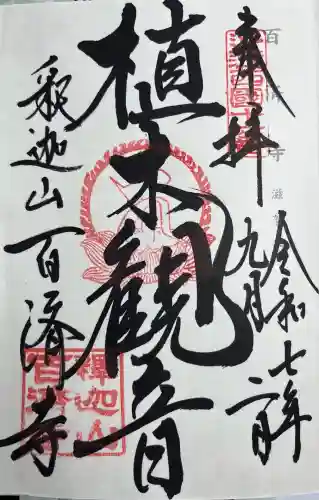 奉拝
令和七年
九月二日
植木観音
釈迦山百済寺
釋迦山
百濟寺